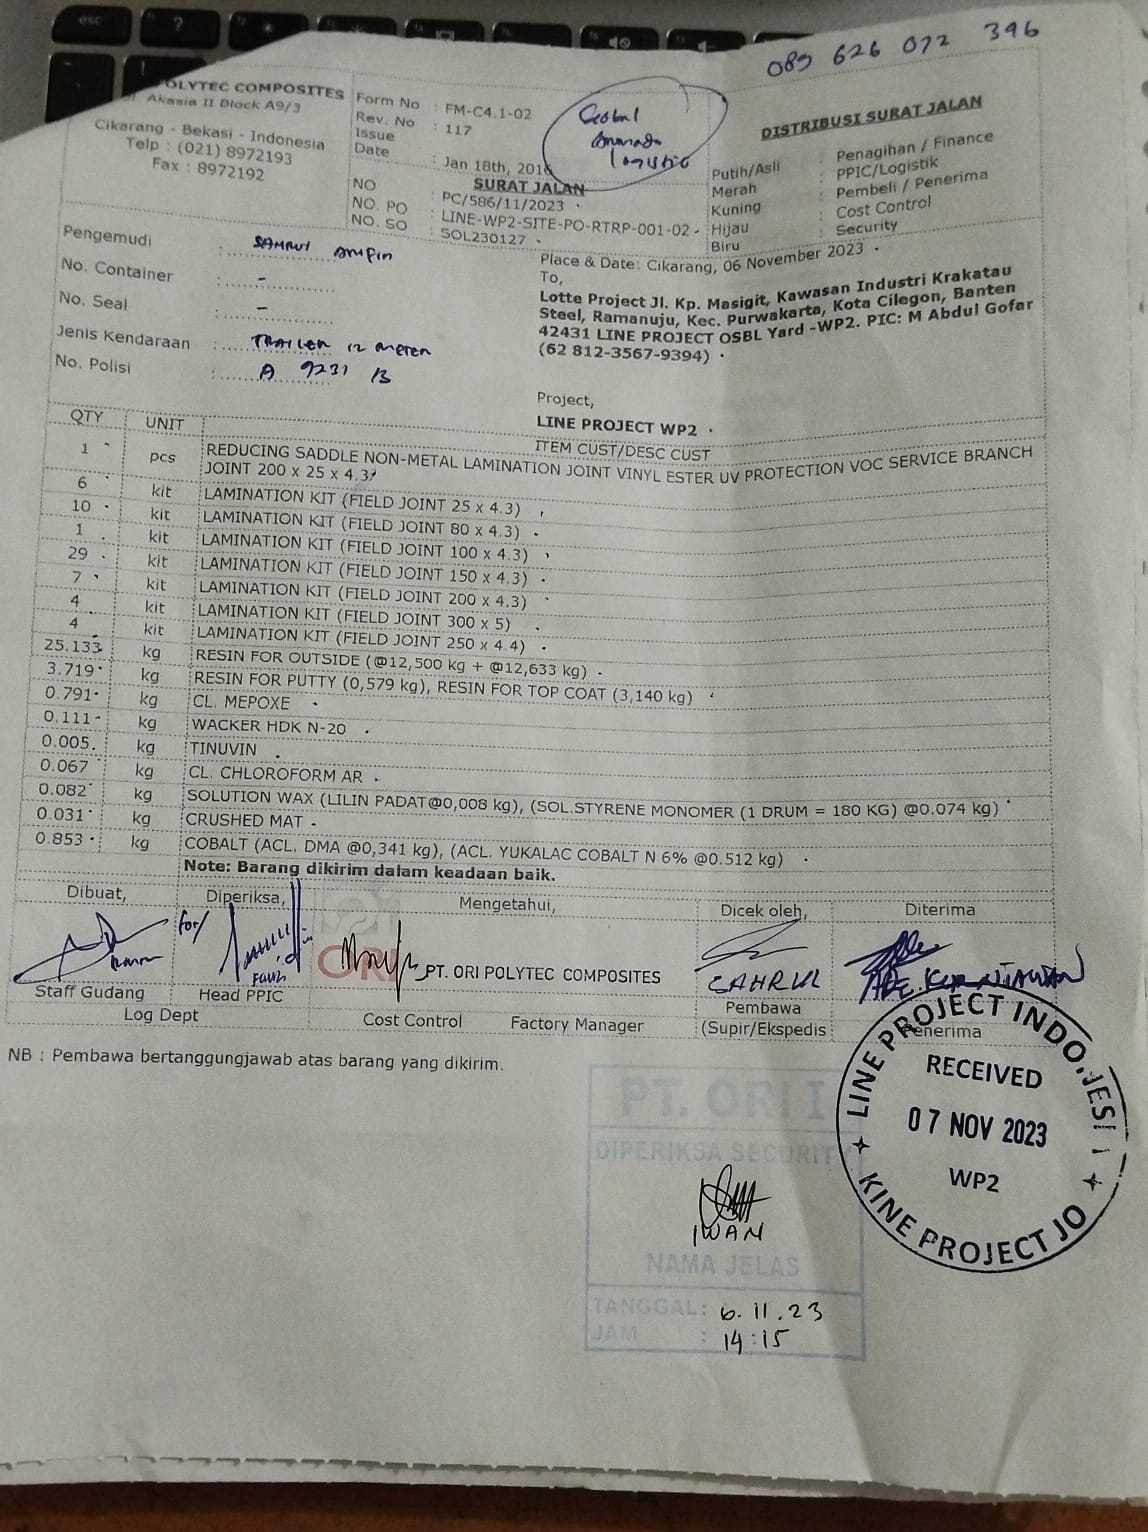 esc
?
089 626 072 396
OLYTEC COMPOSITES
Akasia II Block A9/3
Cikarang - Bekasi - Indonesia
Telp : (021) 8972193
Fax : 8972192
Form No : FM-C4.1-02
Rev. No : 117
Issue
Date : Jan 18th, 2016
Global
Logistic
SURAT JALAN
NO : PC/586/11/2023
NO. PO : LINE-WP2-SITE-PO-RTRP-001-02
NO. SO : SOL230127
DISTRIBUSI SURAT JALAN
Putih/Asli : Penagihan / Finance
Merah : PPIC/Logistik
Kuning : Pembeli / Penerima
Hijau : Cost Control
Biru : Security
Pengemudi : SAHRUL
No. Container : -
No. Seal : -
Jenis Kendaraan : TRAILER 12 METER
No. Polisi : A 9231 B
Place & Date: Cikarang, 06 November 2023
To,
Lotte Project Jl. Kp. Masigit, Kawasan Industri Krakatau
Steel, Ramanuju, Kec. Purwakarta, Kota Cilegon, Banten
42431 LINE PROJECT OSBL Yard -WP2. PIC: M Abdul Gofar
(62 812-3567-9394)
Project,
LINE PROJECT WP2
QTY UNIT ITEM CUST/DESC CUST
1 pcs REDUCING SADDLE NON-METAL LAMINATION JOINT VINYL ESTER UV PROTECTION VOC SERVICE BRANCH
JOINT 200 x 25 x 4.3
6 kit LAMINATION KIT (FIELD JOINT 25 x 4.3)
10 kit LAMINATION KIT (FIELD JOINT 80 x 4.3)
1 kit LAMINATION KIT (FIELD JOINT 100 x 4.3)
29 kit LAMINATION KIT (FIELD JOINT 150 x 4.3)
7 kit LAMINATION KIT (FIELD JOINT 200 x 4.3)
4 kit LAMINATION KIT (FIELD JOINT 300 x 5)
4 kit LAMINATION KIT (FIELD JOINT 250 x 4.4)
25.133 kg RESIN FOR OUTSIDE (@12,500 kg + @12,633 kg)
3.719 kg RESIN FOR PUTTY (0,579 kg), RESIN FOR TOP COAT (3,140 kg)
0.791 kg CL. MEPOXE
0.111 kg WACKER HDK N-20
0.005 kg TINUVIN
0.067 kg CL. CHLOROFORM AR
0.082 kg SOLUTION WAX (LILIN PADAT@0,008 kg), (SOL.STYRENE MONOMER (1 DRUM = 180 KG) @0.074 kg)
0.031 kg CRUSHED MAT
0.853 kg COBALT (ACL. DMA @0,341 kg), (ACL. YUKALAC COBALT N 6% @0.512 kg)
Note: Barang dikirim dalam keadaan baik.
Dibuat, Diperiksa, Mengetahui, Dicek oleh, Diterima
for/
ORI
PT. ORI POLYTEC COMPOSITES
SAHRUL
ADE. KURNIAWAN
Staff Gudang Head PPIC
Log Dept
Cost Control Factory Manager
Pembawa
(Supir/Ekspedis
Penerima
NB : Pembawa bertanggungjawab atas barang yang dikirim.
LINE PROJECT INDONESI
RECEIVED
07 NOV 2023
WP2
KINE PROJECT JO
PT. ORI I
DIPERIKSA SECURIT
IWAN
NAMA JELAS
TANGGAL: 6.11.23
JAM : 14:15